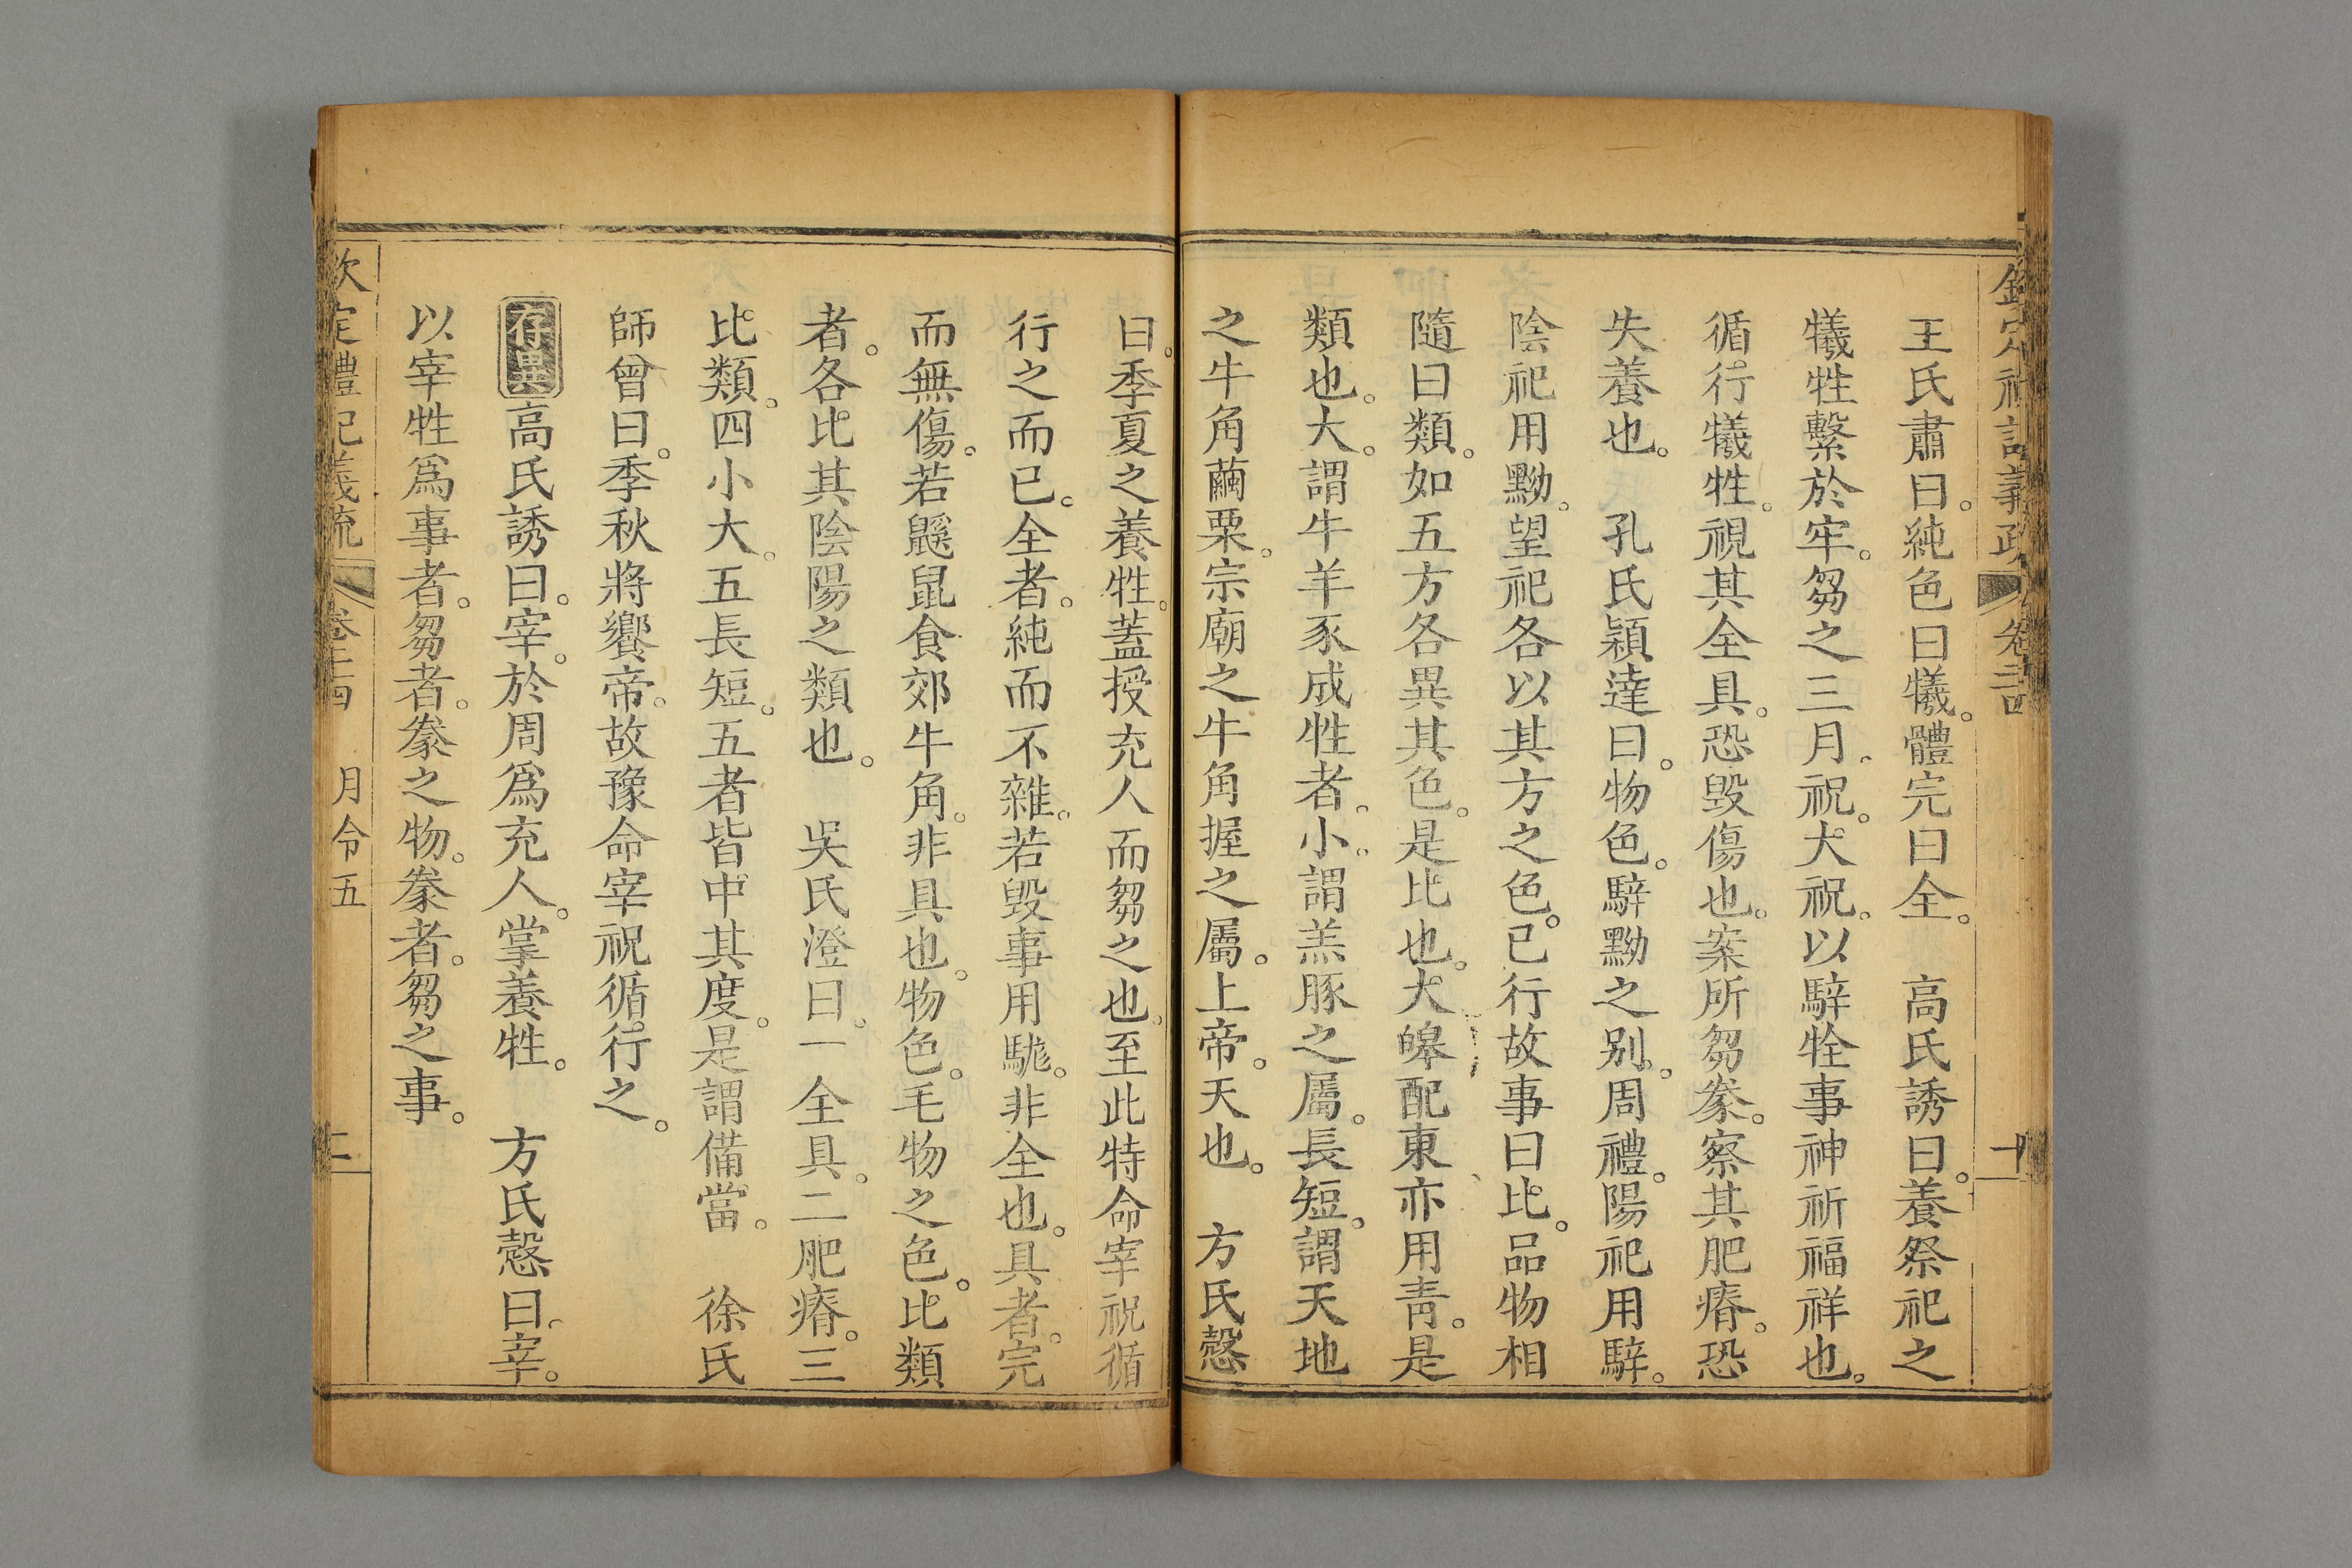 欽定禮記義疏 卷二十四 十
王氏肅曰。純色曰犧。體完曰全。 高氏誘曰。養祭祀之
犧牲繫於牢。芻之三月。祝。犬祝。以騂牷事神祈福祥也。
循行犧牲。視其全具。恐毁傷也。案所芻豢。察其肥瘠。恐
失養也。 孔氏穎達曰。物色。騂黝之别。周禮。陽祀用騂。
陰祀用黝。望祀各以其方之色。已行故事曰比。品物相
隨曰類。如五方各異其色。是比也。大皥配東亦用靑。是
類也。大。謂牛羊豕成牲者。小。謂羔豚之屬。長短。謂天地
之牛角繭栗。宗廟之牛角握之屬。上帝。天也。 方氏慤
曰。季夏之養牲。蓋授充人而芻之也。至此特命宰祝循
行之而已。全者。純而不雜。若毁事用駹。非全也。具者。完
而無傷。若鼷鼠食郊牛角。非具也。物色。毛物之色。比類
者。各比其陰陽之類也。 吳氏澄曰。一全具。二肥瘠。三
比類。四小大。五長短。五者皆中其度。是謂備當。 徐氏
師曾曰。季秋將饗帝。故豫命宰祝循行之。
存異 高氏誘曰。宰。於周爲充人。掌養牲。 方氏慤曰。宰。
以宰牲爲事者。芻者。豢之物。豢者。芻之事。
欽定禮記義疏 卷二十四 月令五 二